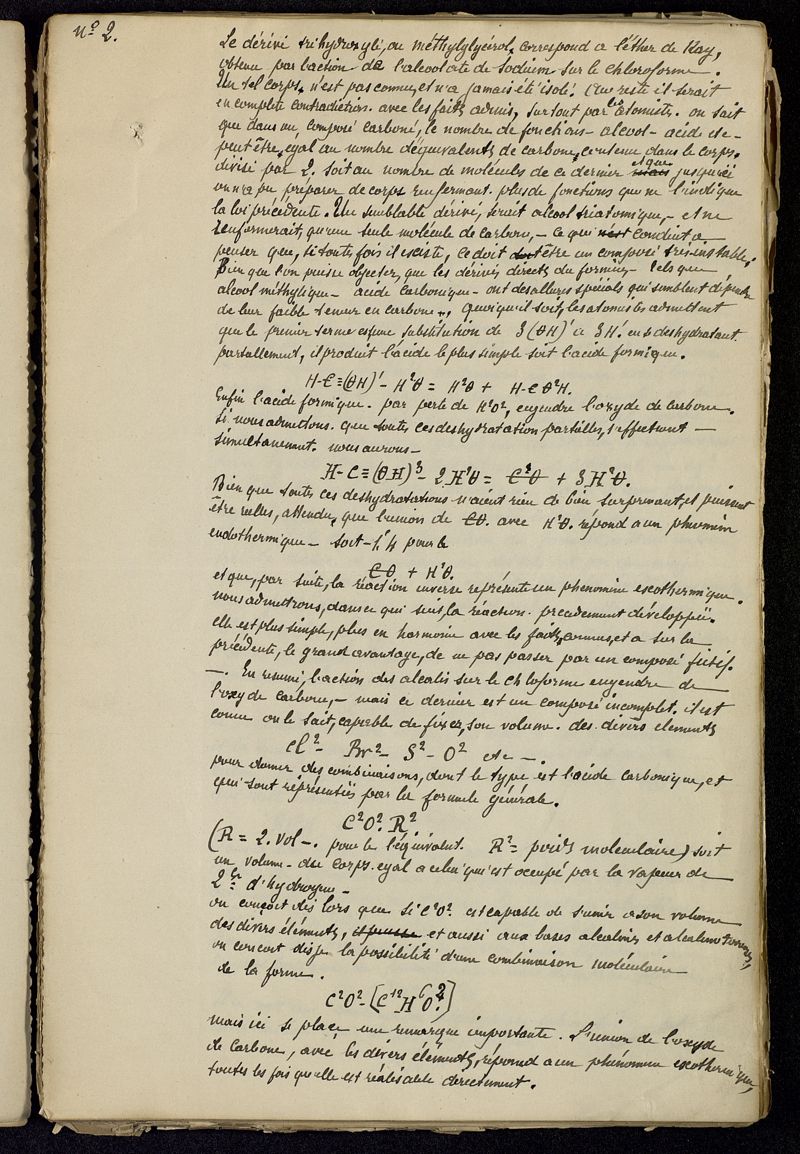 Nº 2.
Le dérivé trihydroxylé, ou méthylglycérol, correspond a l'éther de Kay,
obtenu par l'action de l'alcoolate de sodium sur le chloroforme.
Un tel corps, n'est pas connu, et n'a jamais été isolé. Au reste il serait
en complète contradiction, avec les faits admis, surtout par les atomistes. on sait
que dans un, composé carboné, le nombre de fonctions - alcool - acide etc -
peut être, egal au nombre d'équivalents de carbone, contenu dans le corps.
divisé par 2. soit au nombre de molécules de ce dernier et que jusqu'ici
on n'a pu préparer de corps renfermant plus de fonctions que ne l'indique
la loi précédente. Un semblable dérivé, serait alcool triatomique, - et ne
renfermerait, qu'une seule molécule de carbone, - ce qui conduit a
penser que, si toute fois il existe, ce doit être un composé tres instable.
Bien que l'on puisse objecter, que les dérivés directs du formène, - tels que
alcool méthylique - acide carbonique - ont des allures spéciales qui semblent dépendre
de leur faible teneur en carbone -, quoiqu'il soit, les atomistes admettent
que le premier terme est une substitution de 3 (ΘH)' a 3H'. en se deshydratant
partiellement, il produit l'acide le plus simple soit l'acide formique.
H-C≡(ΘH)' - H²Θ = H²Θ + H-CΘ²H.
Enfin l'acide formique. par perte de H²O², engendre l'oxyde de carbone.
Si nous admettons, que toutes ces deshydratation partielles, s'effectuent -
simultanement. nous aurons -
H-C≡(ΘH)³ - 2H²Θ = C²Θ + 3H²Θ.
Bien que toutes ces deshydratations n'aient rien de bien surprenant, et puissent
être réelles, attendu, que l'union de CΘ. avec H²Θ. répond a un phénomène
endothermique - soit -1,4 pour le
CΘ + H²Θ.
et que, par suite, la réaction inverse représente un phenomène exothermique.
nous admettrons, dans ce qui suit, la réaction précedement développée.
elle est plus simple, plus en harmonie avec les faits connus, et a sur la
précédente, le grand avantage, de ne pas passer par un composé fictif.
-. En resumé, l'action des alcalis sur le chloroforme engendre de
l'oxyde carbone, - mais ce dernier est un composé incomplet. il est
comme on le sait, capable de fixer, son volume. des divers elements
Cl² - Br² - S² - O² etc -.
pour donner des combinaisons, dont le type est l'acide carbonique, et
qui sont représentées par la formule générale.
C²O². R²
(R = 2. vol -. pour le l'équivalent. R² = poids moleculaire) soit
un volume - du corps. egal a celui qui est occupé par la vapeur de
2gr d'hydrogène -
on conçoit dès lors que si C²O². est capable de s'unir a son volume
des divers éléments, et aussi aux bases alcalines et alcalino terreuses,
on concoit disje la possibilité d'une combinaison moléculaire
de la forme.
C²O² - [C¹²H⁶O²]
mais ici se place une remarque importante. L'union de l'oxyde
de carbone, avec les divers éléments, répond a un phénomène exothermique,
toutes les fois qu'elle est réalisable directement.